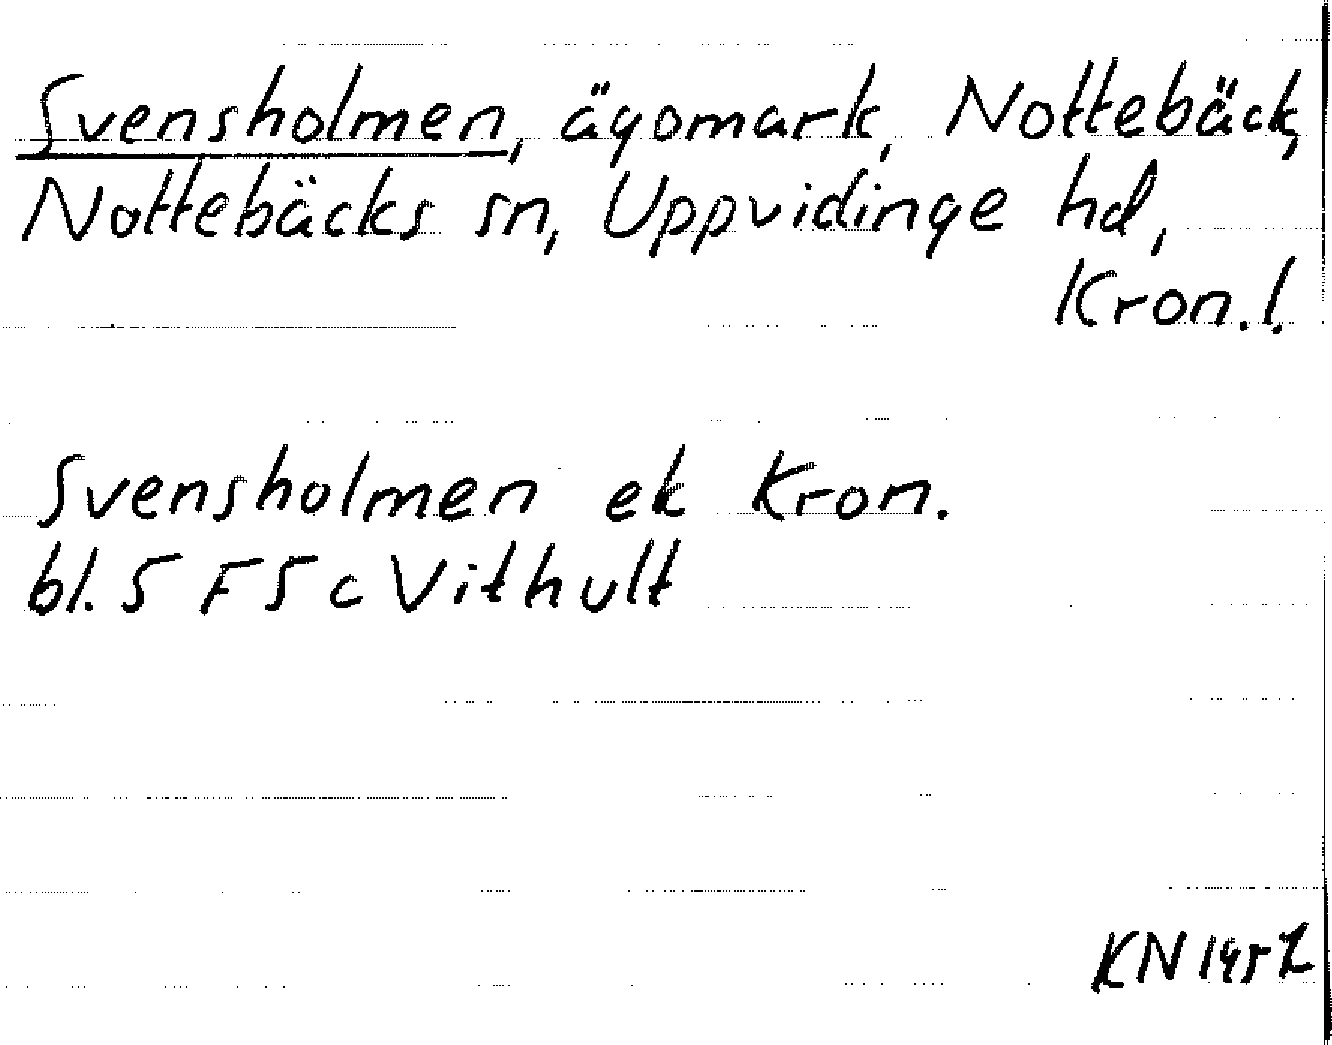 Svensholmen, ägomark, Nottebäck,
Nottebäcks sn, Uppvidinge hd,
Kron.l.
Svensholmen ek Kron.
bl. 5 F 5 c Vithult
KN 1952